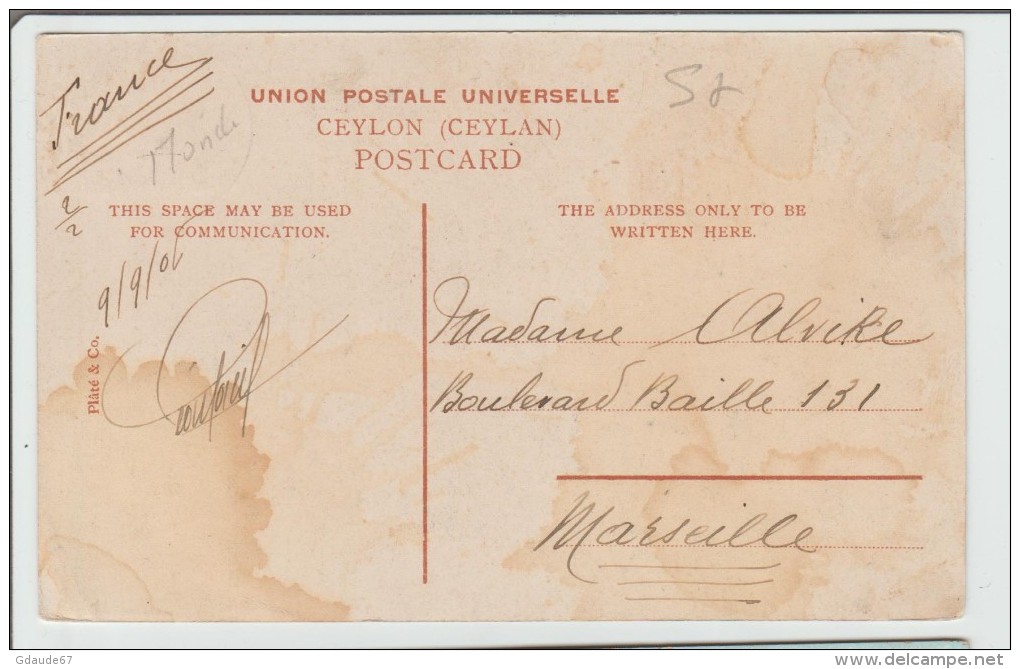 France
UNION POSTALE UNIVERSELLE
CEYLON (CEYLAN)
POSTCARD
Monde
2/2
THIS SPACE MAY BE USED
FOR COMMUNICATION.
9/9/05
Plâté & Co.
THE ADDRESS ONLY TO BE
WRITTEN HERE.
Madame Alvike
Boulevard Baille 131
Marseille
Gdaude67
www.delcampe.net